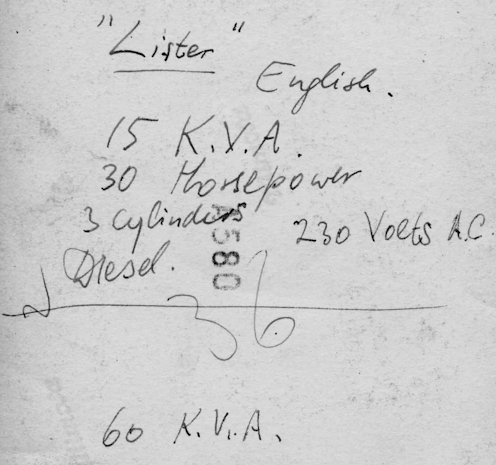 "Lister"
English.
15 K.V.A.
30 Horsepower
3 cylinders 230 Volts A.C.
Diesel.
A580
36
60 K.V.A.